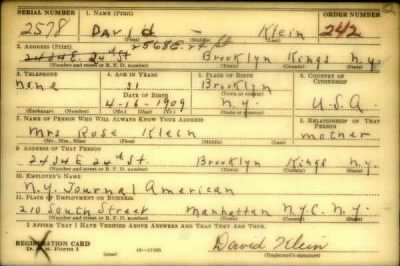 SERIAL NUMBER 1. NAME (Print) ORDER NUMBER
2578 David — Klein 242
(First) (Middle) (Last)
2. ADDRESS (Print) 2568 E. 24 St
2434 E. 24th St. Brooklyn Kings N.Y.
(Number and street or R. F. D. number) (Town) (County) (State)
3. TELEPHONE 4. AGE IN YEARS 5. PLACE OF BIRTH 6. COUNTRY OF CITIZENSHIP
none 31 Brooklyn
DATE OF BIRTH (Town or county)
4-16-1909 N.Y. U.S.A.
(Exchange) (Number) (Mo.) (Day) (Yr.) (State or country)
7. NAME OF PERSON WHO WILL ALWAYS KNOW YOUR ADDRESS 8. RELATIONSHIP OF THAT PERSON
Mrs Rose Klein mother
(Mr., Mrs., Miss) (First) (Middle) (Last)
9. ADDRESS OF THAT PERSON
2434 E 24th St. Brooklyn Kings N.Y.
(Number and street or R. F. D. number) (Town) (County) (State)
10. EMPLOYER'S NAME
N.Y. Journal American
11. PLACE OF EMPLOYMENT OR BUSINESS
210 South Street Manhattan N.Y.C. N.Y.
(Number and street or R. F. D. number) (Town) (County) (State)
I AFFIRM THAT I HAVE VERIFIED ABOVE ANSWERS AND THAT THEY ARE TRUE.
REGISTRATION CARD
D. S. S. Form 1 David Klein
(Registrant's signature)